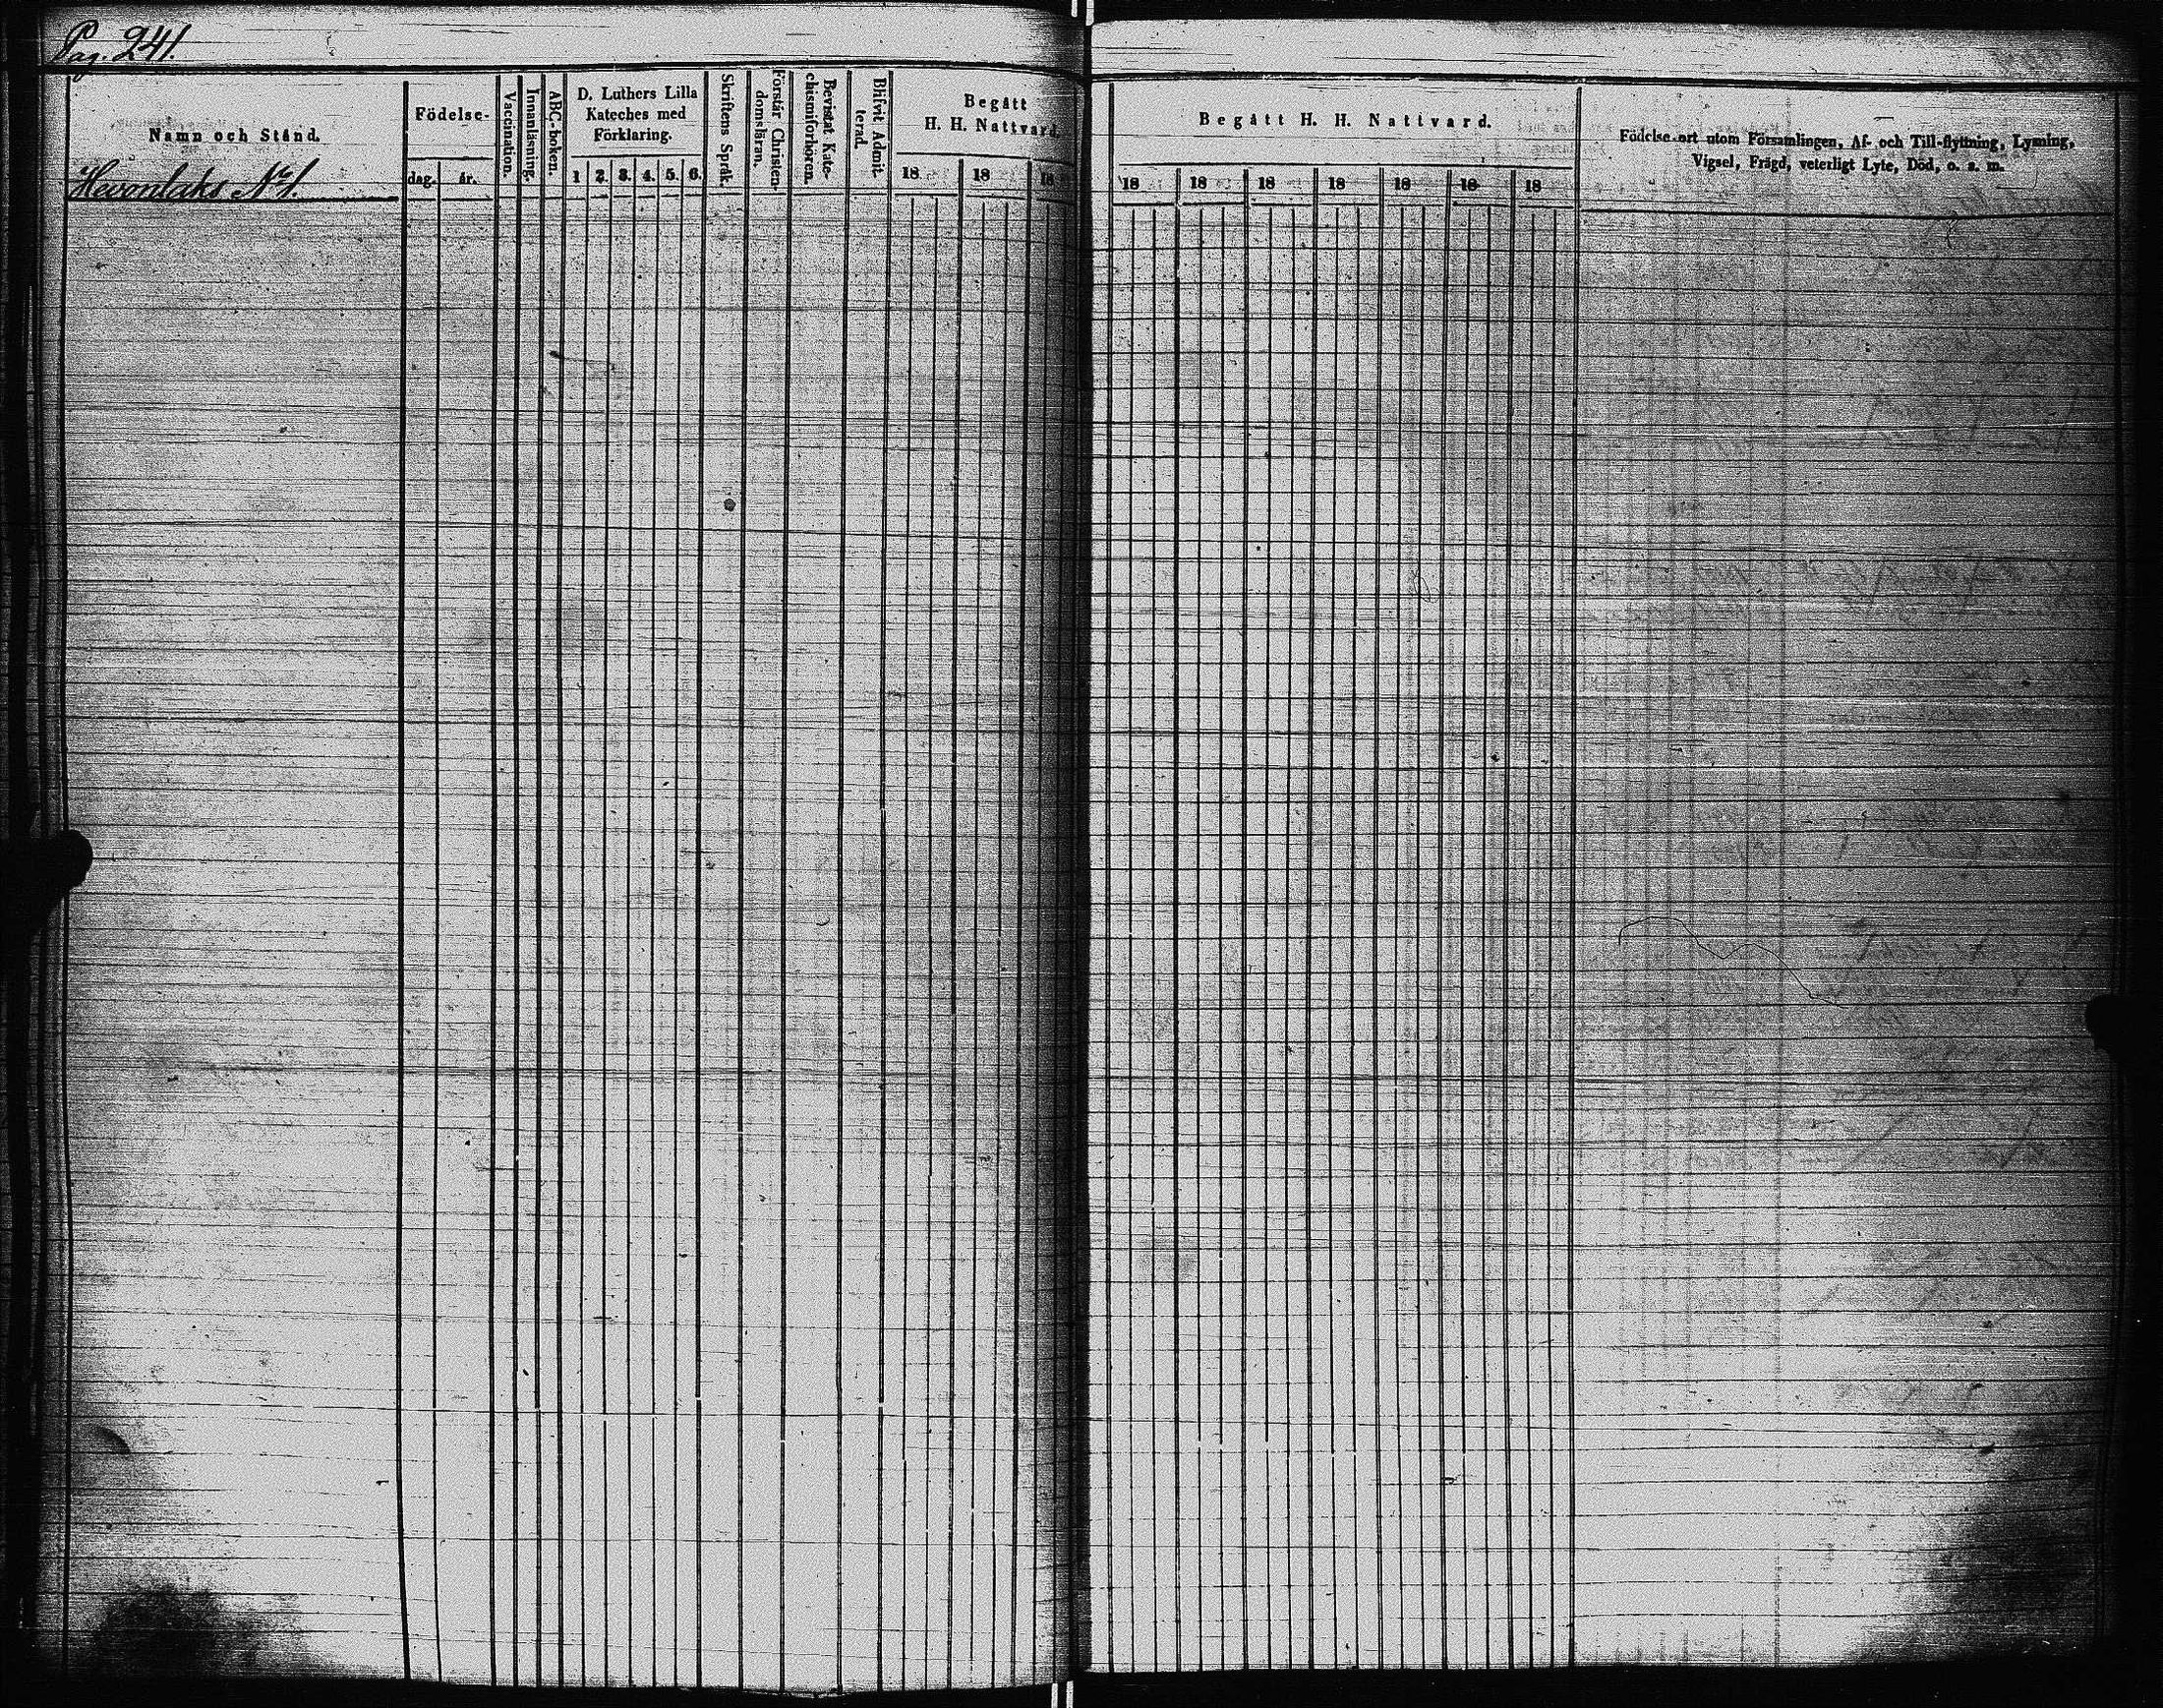 Pag. 241.
Namn och Stånd.
Hevonlaks No 1.
Födelse-
dag. år.
Vaccination.
Innanläsning.
ABC-boken.
D. Luthers Lilla
Kateches med
Förklaring.
1 2. 3. 4. 5. 6.
Skriftens Språk.
Förstår Christen-
domsläran.
Bevistat Kate-
chismiförhören.
Blifvit Admit-
terad.
Begått
H. H. Nattvard.
18 18 18
Begått H. H. Nattvard.
18 18 18 18 18 18 18
Födelse-ort utom Församlingen, Af- och Till-flyttning, Lysning,
Vigsel, Frägd, veterligt Lyte, Död, o. s. m.